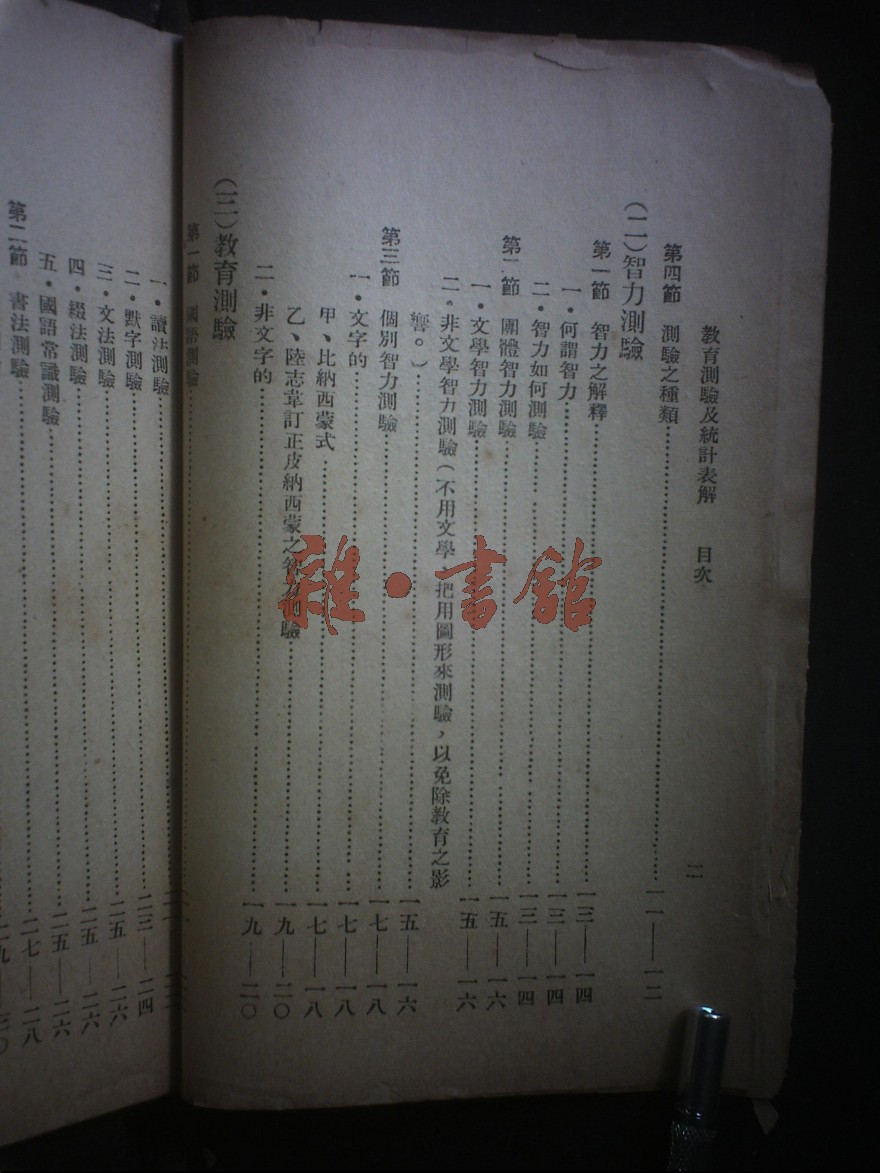 教育測驗及統計表解　目次
二
第四節　測驗之種類……一一——一二
(二)智力測驗
第一節　智力之解釋……一三——一四
一・何謂智力……一三——一四
二・智力如何測驗……一三——一四
第二節　團體智力測驗……一五——一六
一・文學智力測驗……一五——一六
二。非文學智力測驗(不用文學、把用圖形來測驗，以免除教育之影
響。)……一五——一六
第三節　個別智力測驗……一七——一八
一・文字的……一七——一八
甲、比納西蒙式……一七——一八
乙、陸志韋訂正皮納西蒙之智力測驗……一九——二〇
二・非文字的……一九——二〇
(三)教育測驗
第一節　國語測驗
一・讀法測驗
二・默字測驗……二三——二四
三・文法測驗……二五——二六
四・綴法測驗……二五——二六
五・國語常識測驗……二五——二六
第二節　書法測驗……二七——二八
雜・書館